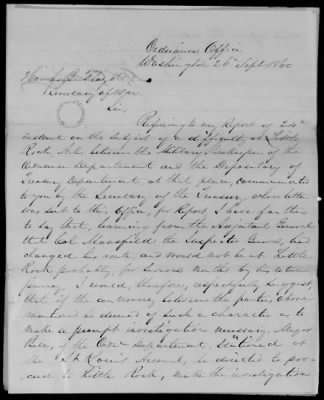 Ordnance Office
Washington 26th Sept 1860
Secretary of War.
Sir,
Referring to my Report of 24th
instant on the subject of a difficulty, at Little
Rock, Ark. between the Military Storekeeper of the
Ordnance Department and the Depositary of
Treasury Department, at that place, communicated
to you by the Secretary of the Treasury, whose letter
was sent to this Office, for Report, I have further
to say that, learning from the Adjutant General
that Col Mansfield the Inspector General, had
changed his route, and would not be at Little
Rock probably, for several months by his return
journey, I would, therefore, respectfully suggest,
that if the controversy between the parties, above
mentioned is deemed of such a character as to
make a prompt investigation necessary, Major
Bell, of the Ord. Department, stationed at
the St Louis Arsenal, be directed to pro-
ceed to Little Rock, make the investigation